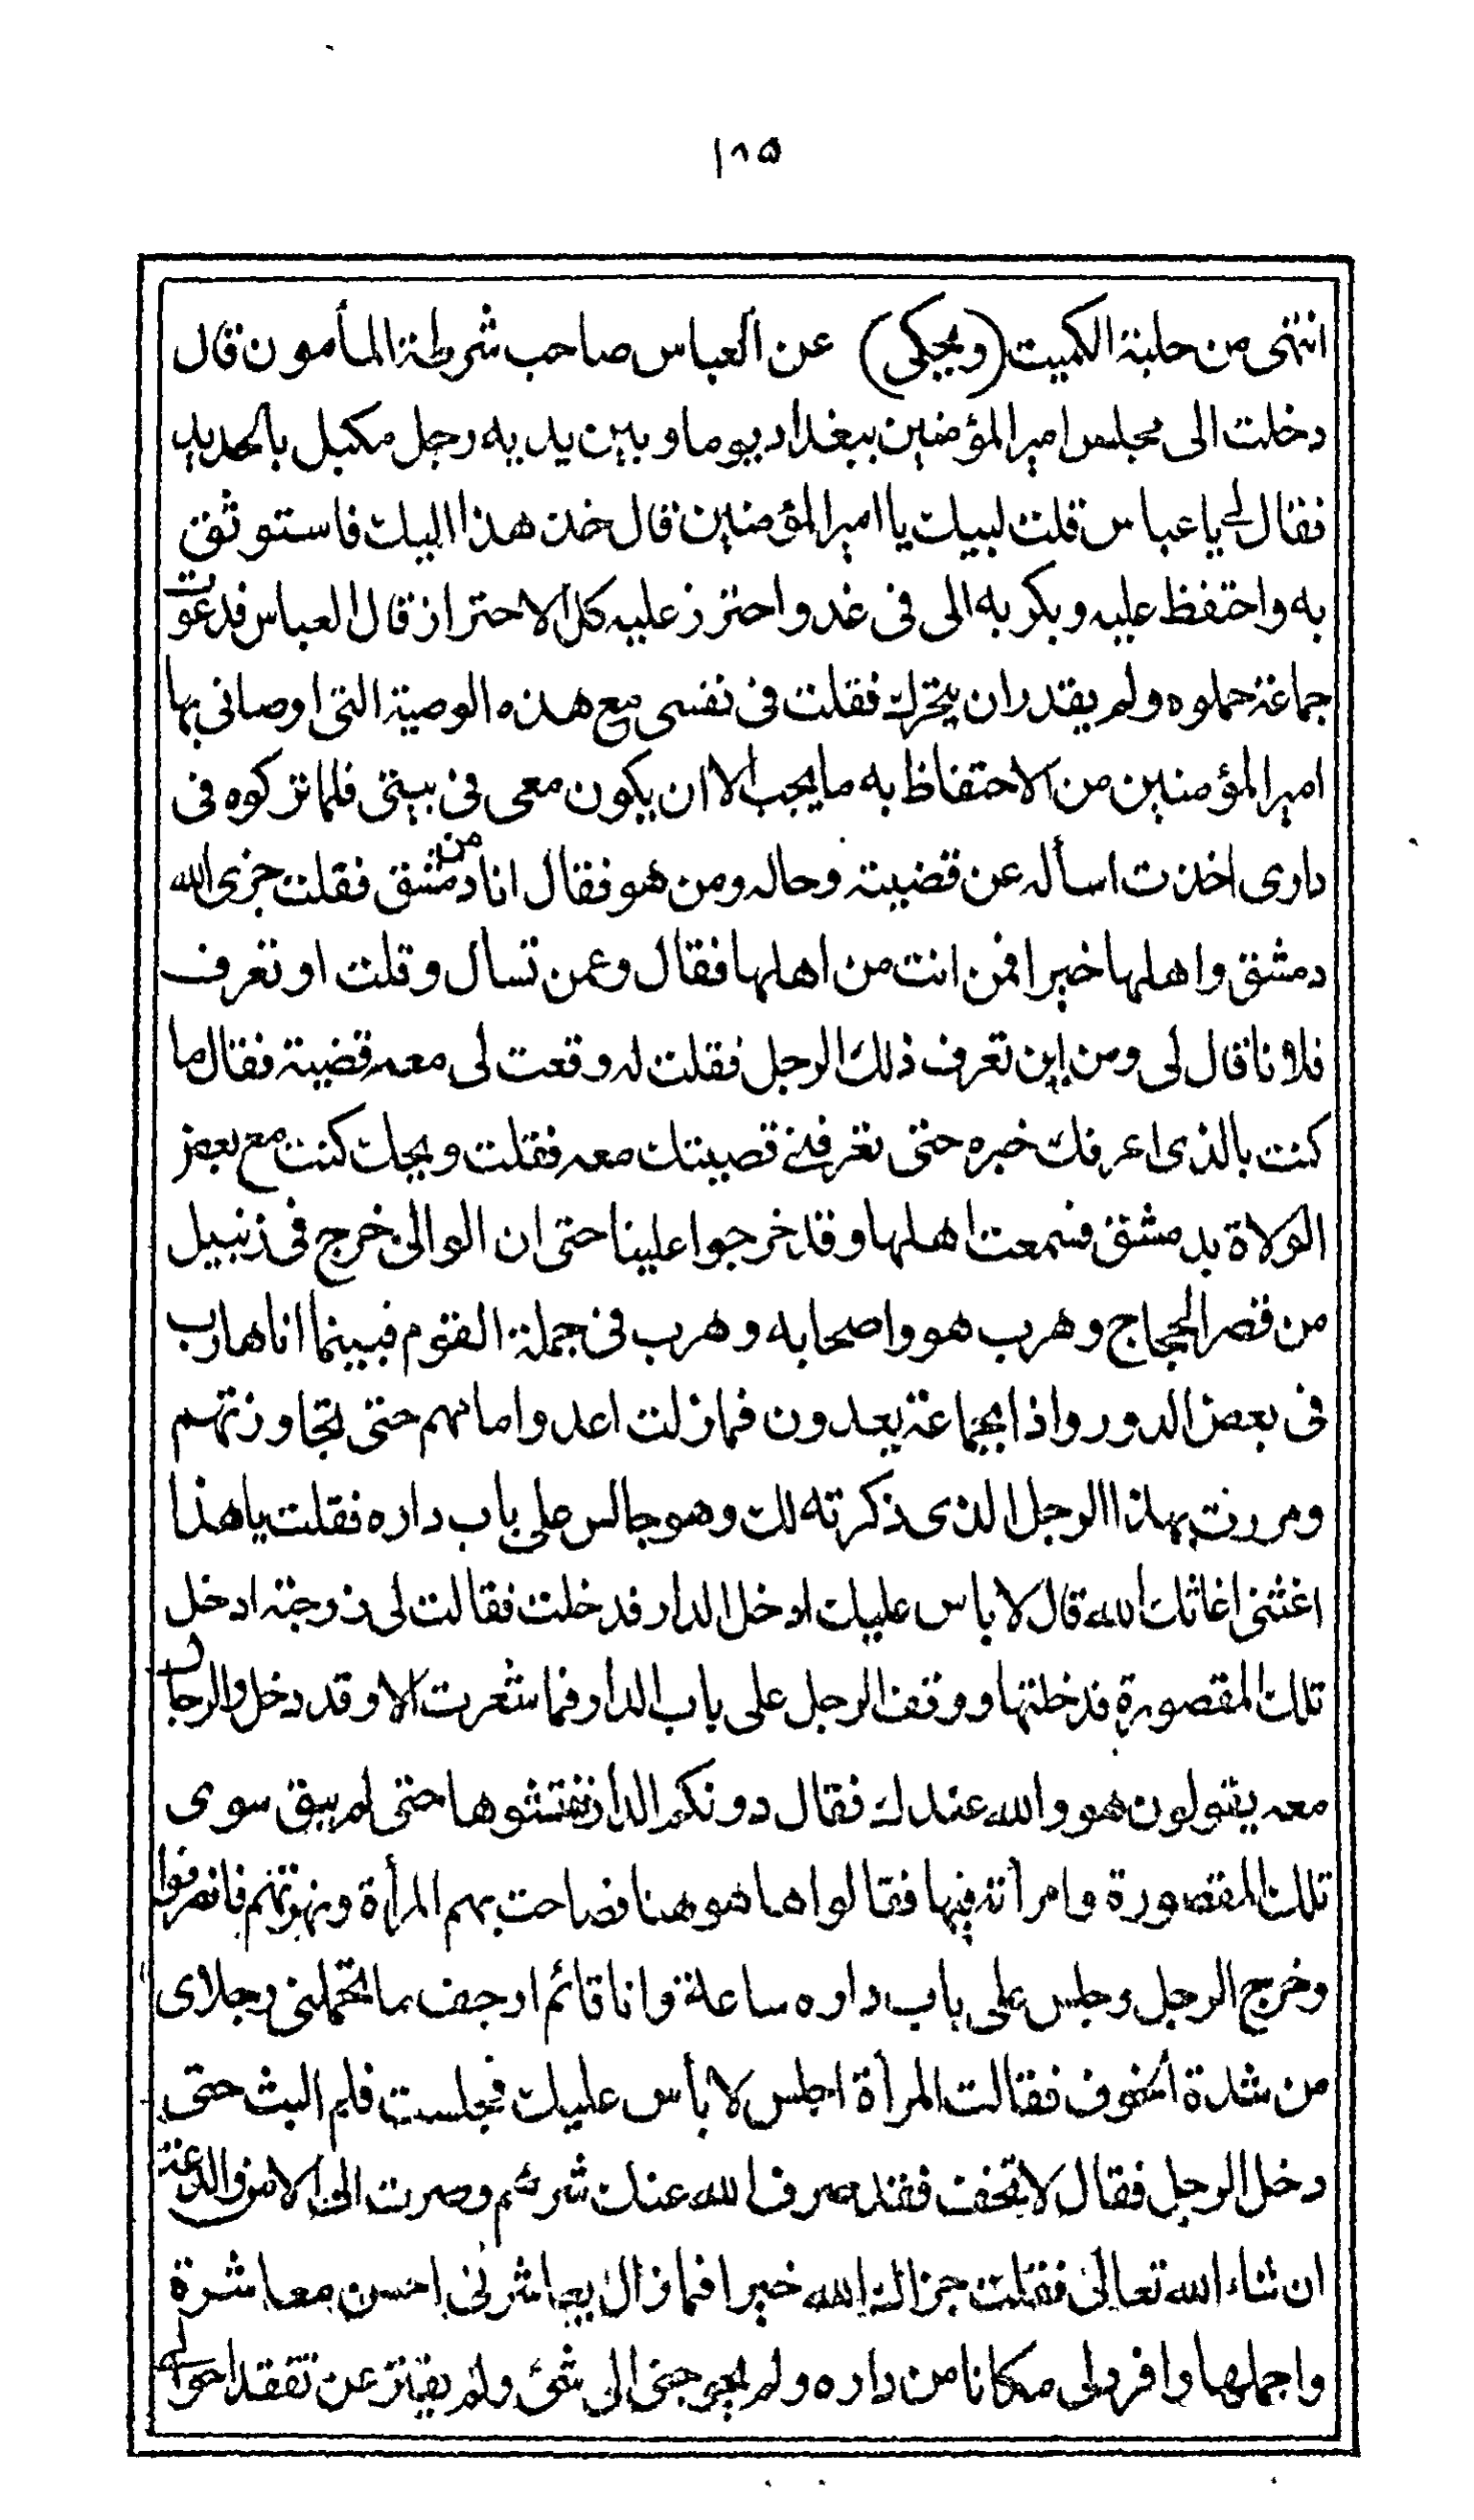 ١٨٥
انتهى من حلبة الكميت (ويحكى) عن العباس صاحب شرطة المأمون قال
دخلت الى مجلس امير المؤمنين ببغداد يوما وبين يديه رجل مكبل بالحديد
فقال لى يا عباس قلت لبيك يا امير المؤمنين قال خذ هذا اليك فاستوثق
به واحتفظ عليه وبكر به الى فى غد واحترز عليه كل الاحتراز قال العباس فدعوت
جماعة حملوه ولم يقدر ان يتحرك فقلت فى نفسى مع هذه الوصية التى اوصانى بها
امير المؤمنين من الاحتفاظ به ما يجب الا ان يكون معى فى بيتى فلما تركوه فى
دارى اخذت اسأله عن قضيته وحاله ومن هو فقال انا من دمشق فقلت جزى الله
دمشق واهلها خيرا فمن انت من اهلها فقال وعمن تسال وقلت او تعرف
فلانا قال لى ومن اين تعرف ذلك الرجل فقلت له وقعت لى معه قضية فقال ما
كنت بالذى اعرفك خبره حتى تعرفنى قصيتك معه فقلت ويحك كنت مع بعض
الولاة بدمشق فسمعت اهلها وقد خرجوا علينا حتى ان الوالى خرج فى زنبيل
من قصر الحجاج وهرب هو واصحابه وهرب فى جملة القوم فبينما انا هارب
فى بعض الدور واذا بجماعة يعدون فما زلت اعدو امامهم حتى تجاوزتهم
ومررت بهذا الرجل الذى ذكرته لك وهو جالس على باب داره فقلت يا هذا
اغثنى اغاثك الله قال لا باس عليك ادخل الدار فدخلت فقالت لى زوجته ادخل
تلك المقصورة فدخلتها ووقف الرجل على باب الدار فما شعرت الا وقد دخل والرجال
معه يقولون هو والله عندك فقال دونكم الدار ففتشوها حتى لم يبق سوى
تلك المقصورة وامرأته فيها فقالوا ها هو هنا فصاحت بهم المرأة ونهرتهم فانصرفوا
وخرج الرجل وجلس على باب داره ساعة وانا قائم ارجف ما تحملنى رجلاى
من شدة الخوف فقالت المرأة اجلس لا بأس عليك فجلست فلم البث حتى
دخل الرجل فقال لا تخف فقد صرف الله عنك شرهم وصرت الى الامن والدعة
ان شاء الله تعالى فقلت جزاك الله خيرا فما زال يعاشرنى احسن معاشرة
واجملها وافرد لى مكانا من داره ولم يحوجنى الى شئ ولم يفتر عن تفقد احوالى